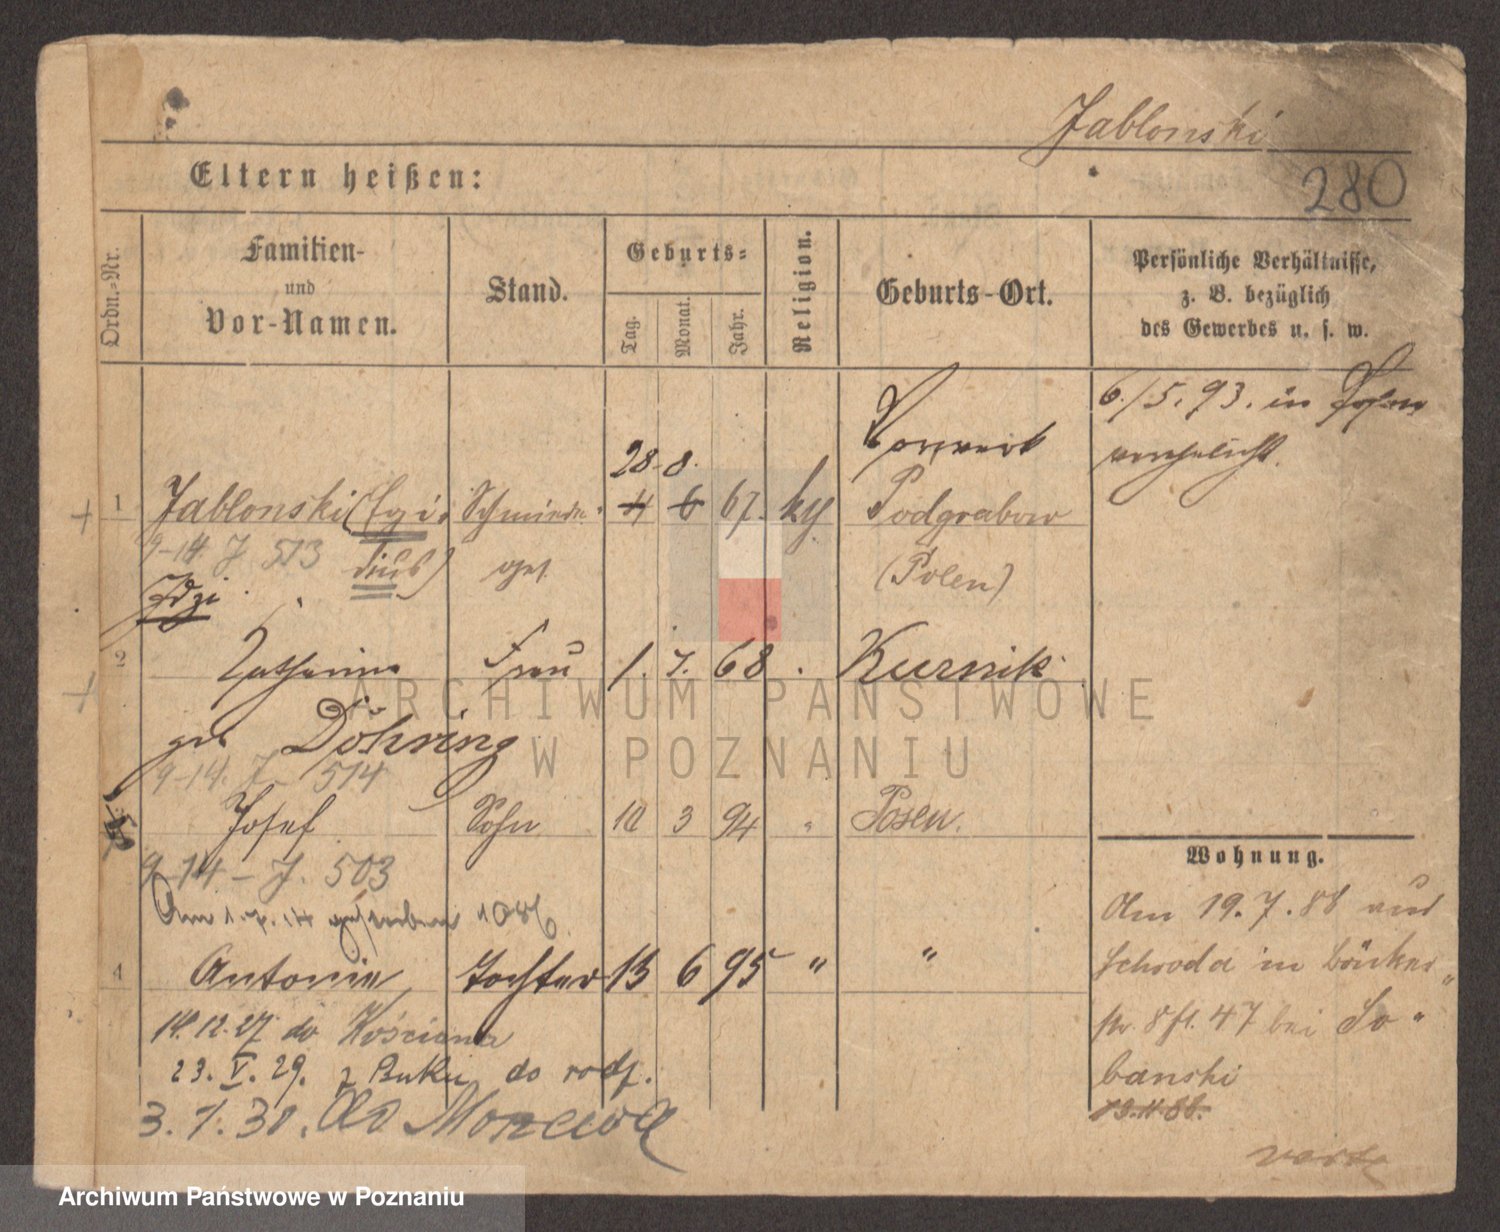 Jablonski
280
Eltern heißen:
Ordn.-Nr.
Familien-
und
Vor-Namen.
Stand.
Geburts-
Tag.
Monat.
Jahr.
Religion.
Geburts-Ort.
Persönliche Verhältnisse,
z. B. bezüglich
des Gewerbes u. s. w.
6./5. 93. in Posen
verehelicht.
28. 8.
Vorwerk
1 Jablonski (Egi- Schmiede- 4 6 67. kath Podgrabow
9-14. J 513 dius) ges. (Polen)
Idzi
2 Katharina Frau 1. 7. 68 Kurnik
geb. Döhring
9-14. J- 514
Josef Sohn 10 3 94 " Posen.
9-14 - J. 503
Am 1. 7. 14 gestorben
4 Antonie Tochter 13 6 95 " "
14.12.27 do Kościana
23. V. 29. z Buku do rodz.
3. 1. 30. do
Wohnung.
Am 19. 7. 88 aus
Schroda in Bäcker-
str. 8 fl. 47 bei So-
banski
19.11.88.
verte
ARCHIWUM PAŃSTWOWE
W POZNANIU
Archiwum Państwowe w Poznaniu